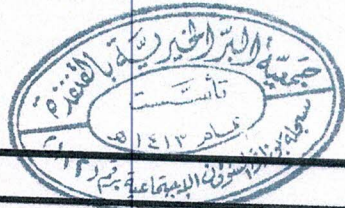 جمعية البر الخيرية بالقنفذة
تأسست
عام ١٤١٣ هـ
مسجلة بوزارة الشؤون الاجتماعية برقم